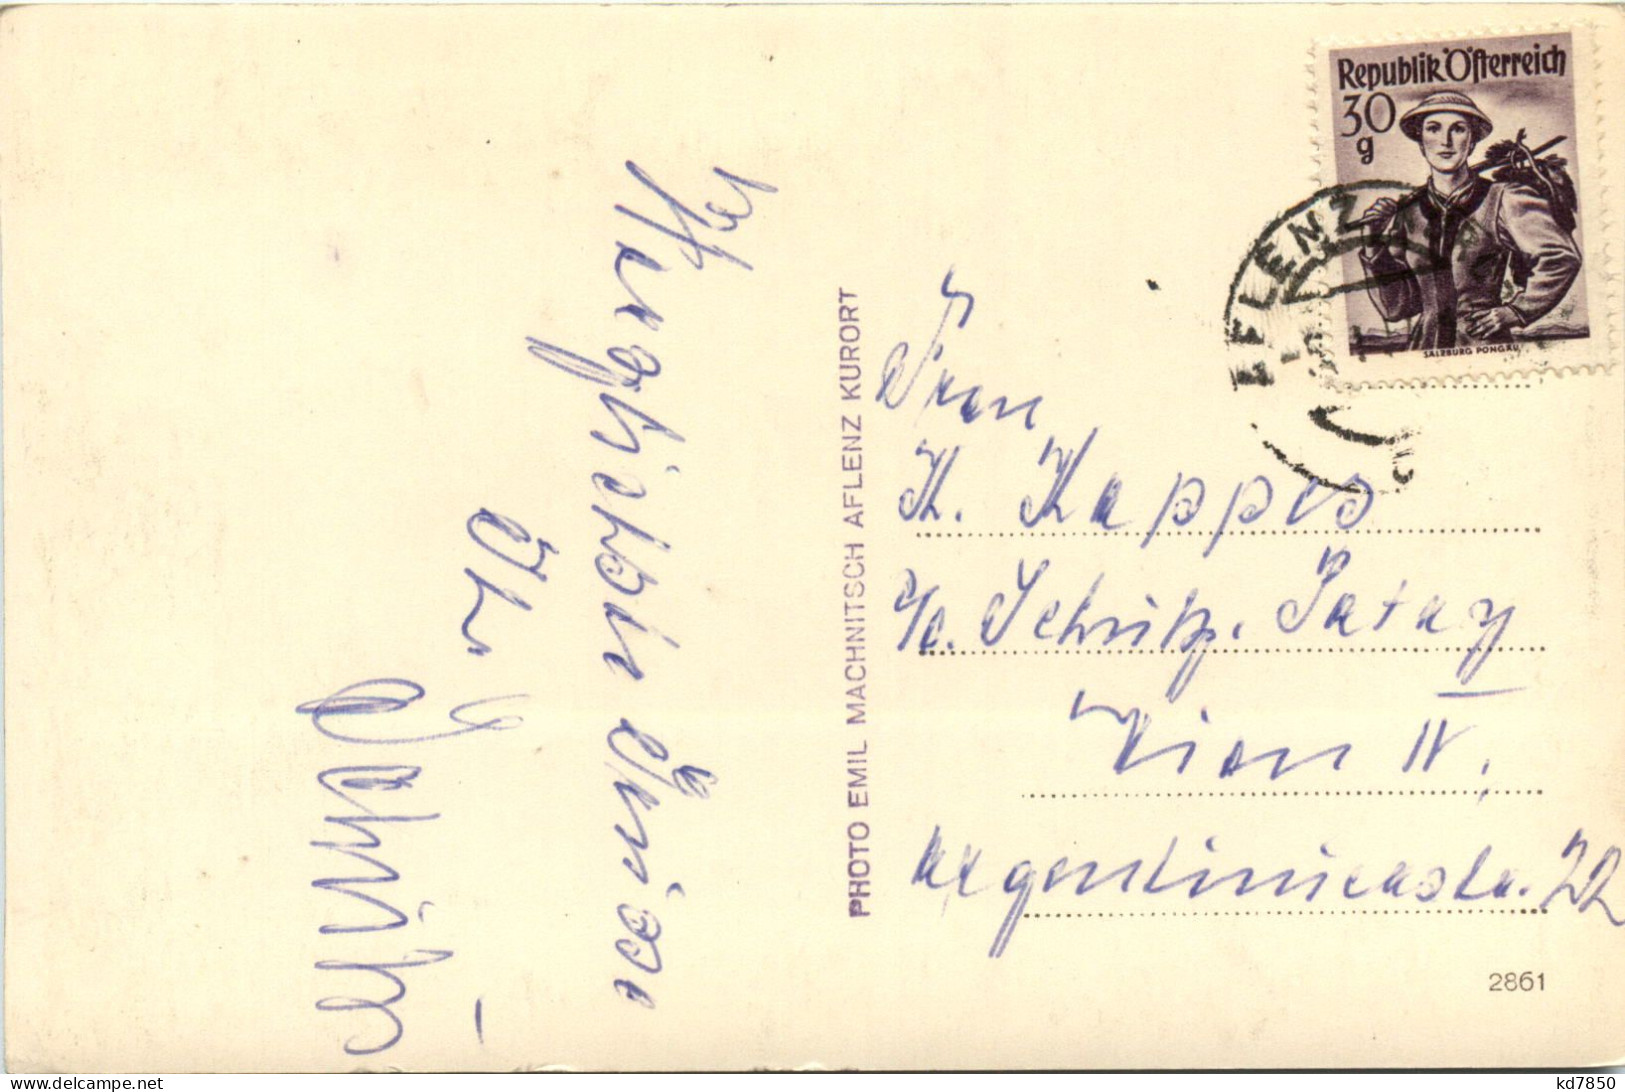 Republik Österreich
30
g
SALZBURG PONGAU
AFLENZ
Herzlichste Grüsse
Ihr
PHOTO EMIL MACHNITSCH AFLENZ KURORT
Frau
K. Kappes
Wien IV.
Argentinierstr. 22
2861
delcampe.net
kd7850